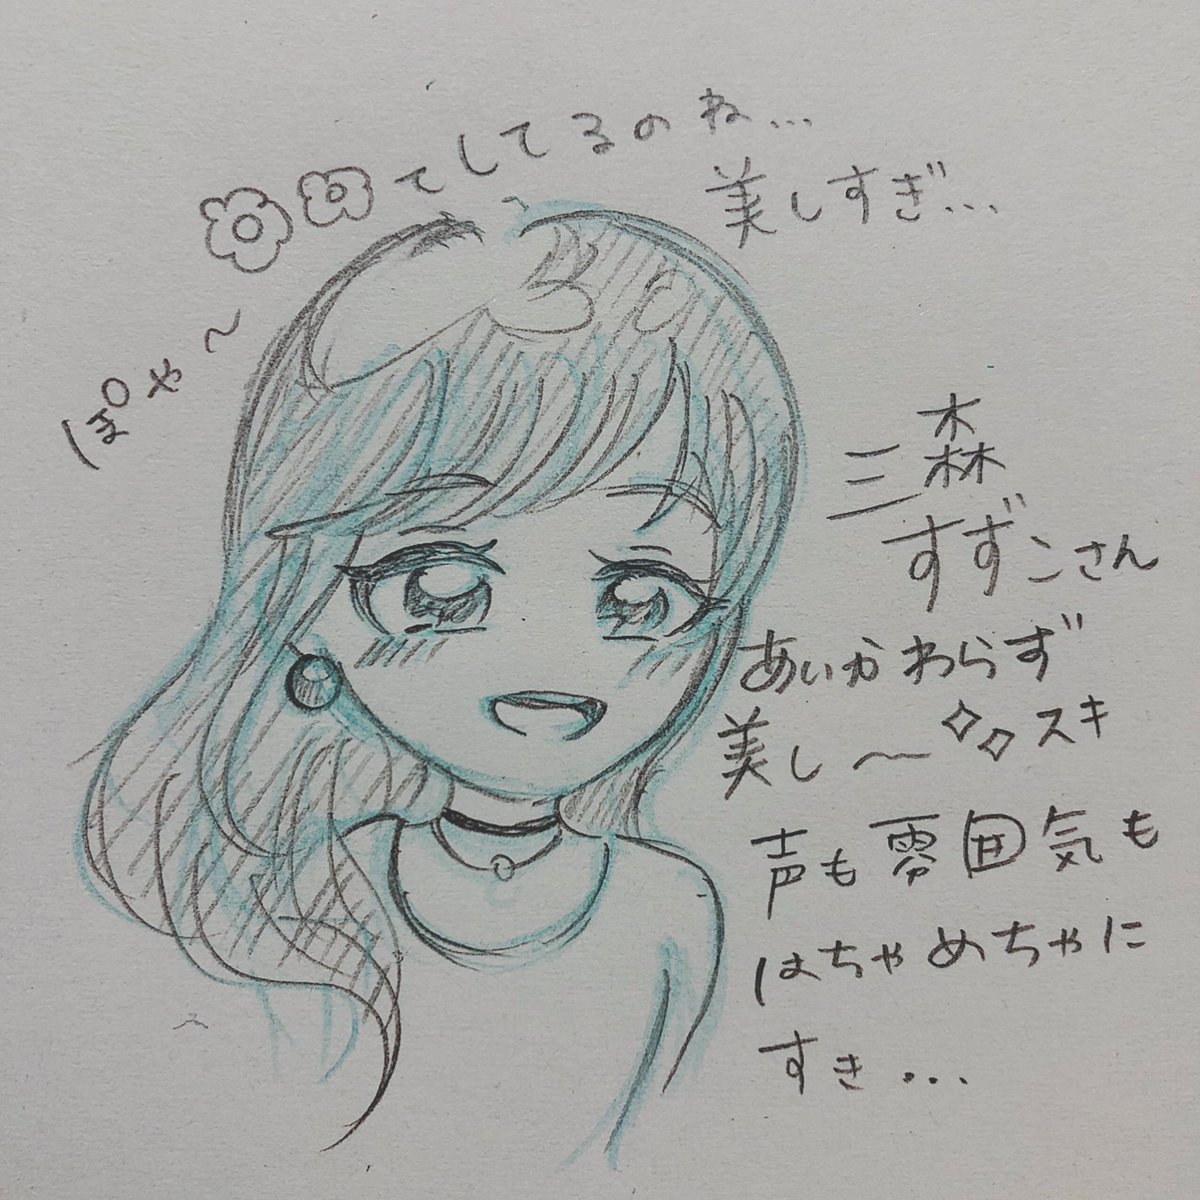 ぽや〜てしてるのね...
美しすぎ...
三森
すずこさん
あいかわらず
美し〜スキ
声も雰囲気も
はちゃめちゃに
すき...